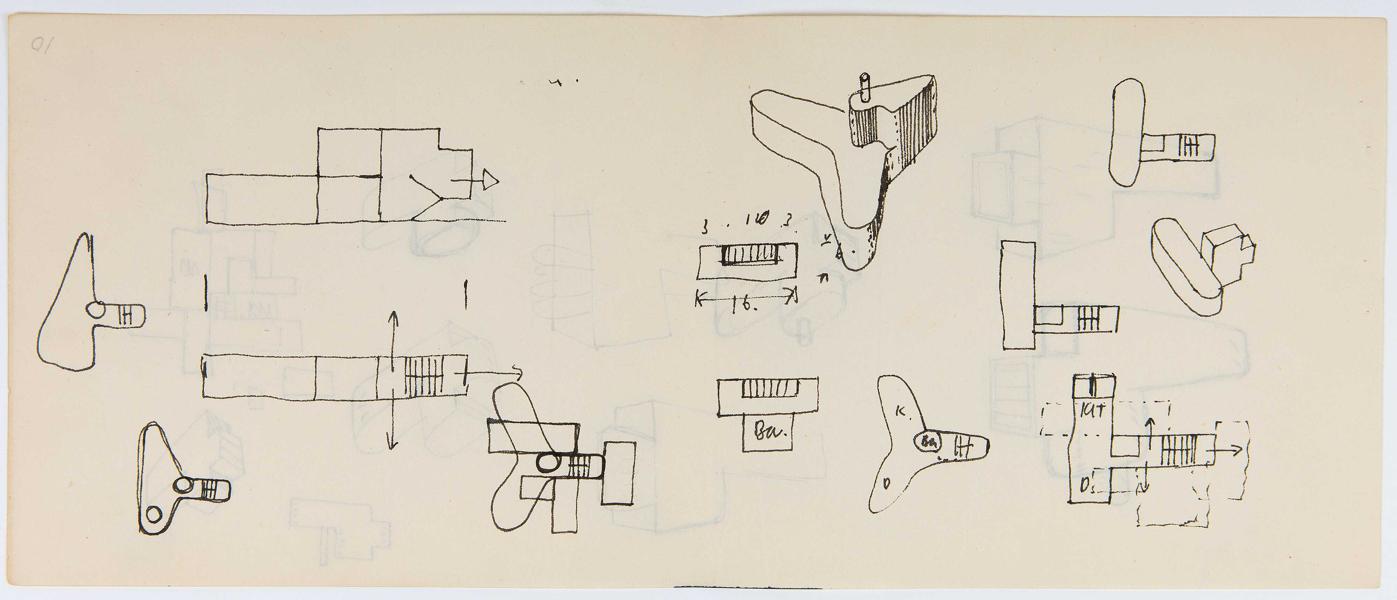 01
3 . 10 3
16.
Ba.
K.
Ba
D
Kit
D